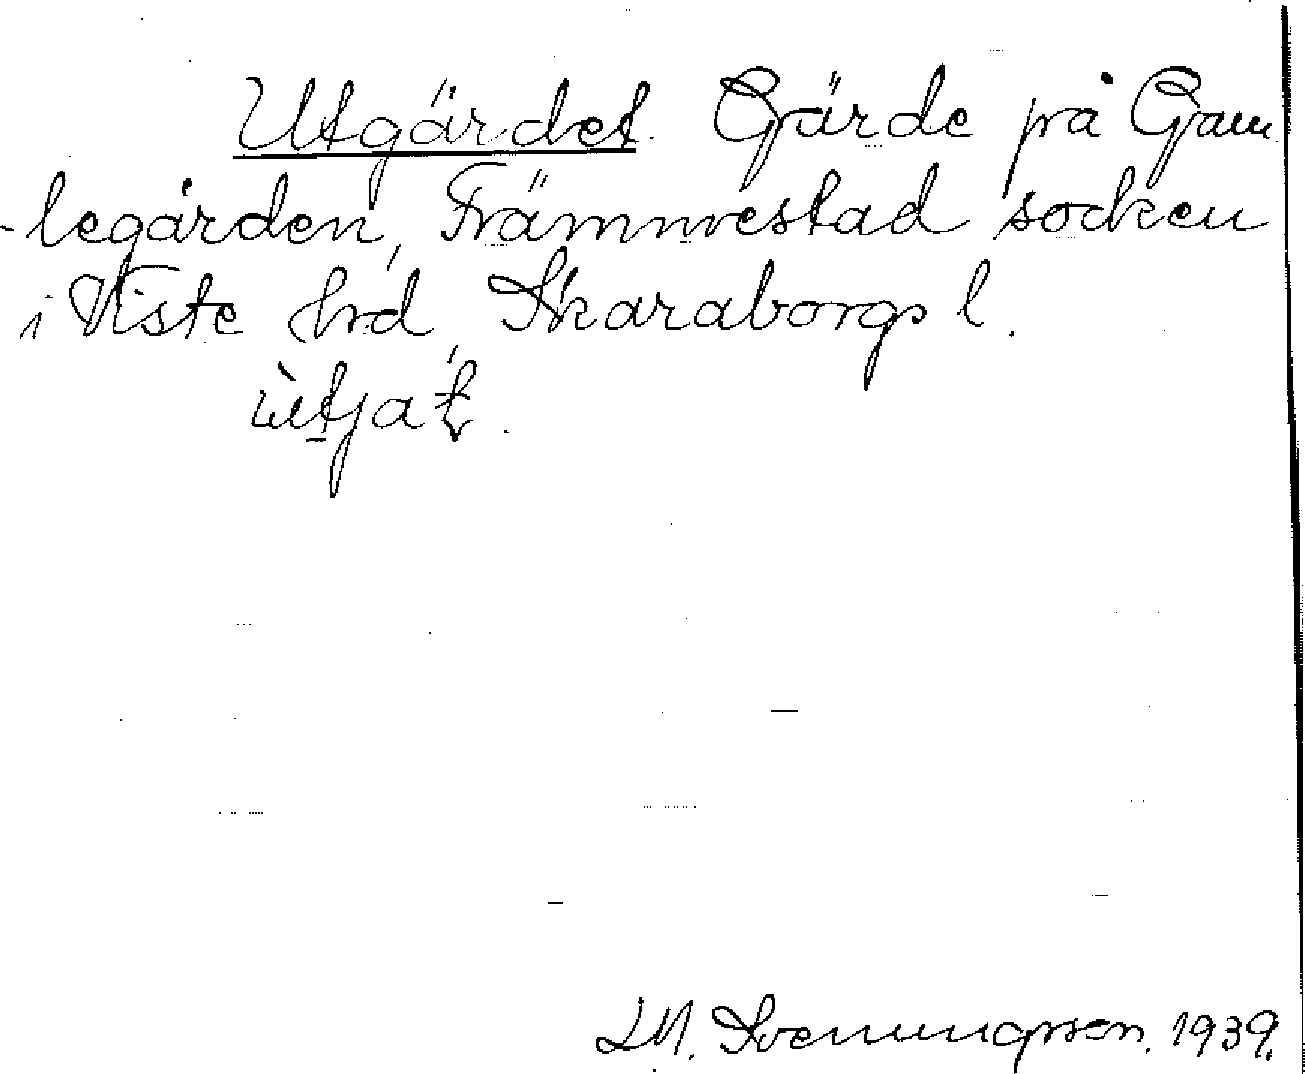 Utgärdet. Gärde på Gam
-legården, Främmestad socken
i Viste hrd, Skaraborgs l.
ùtja
LM. Svenungsson. 1939.